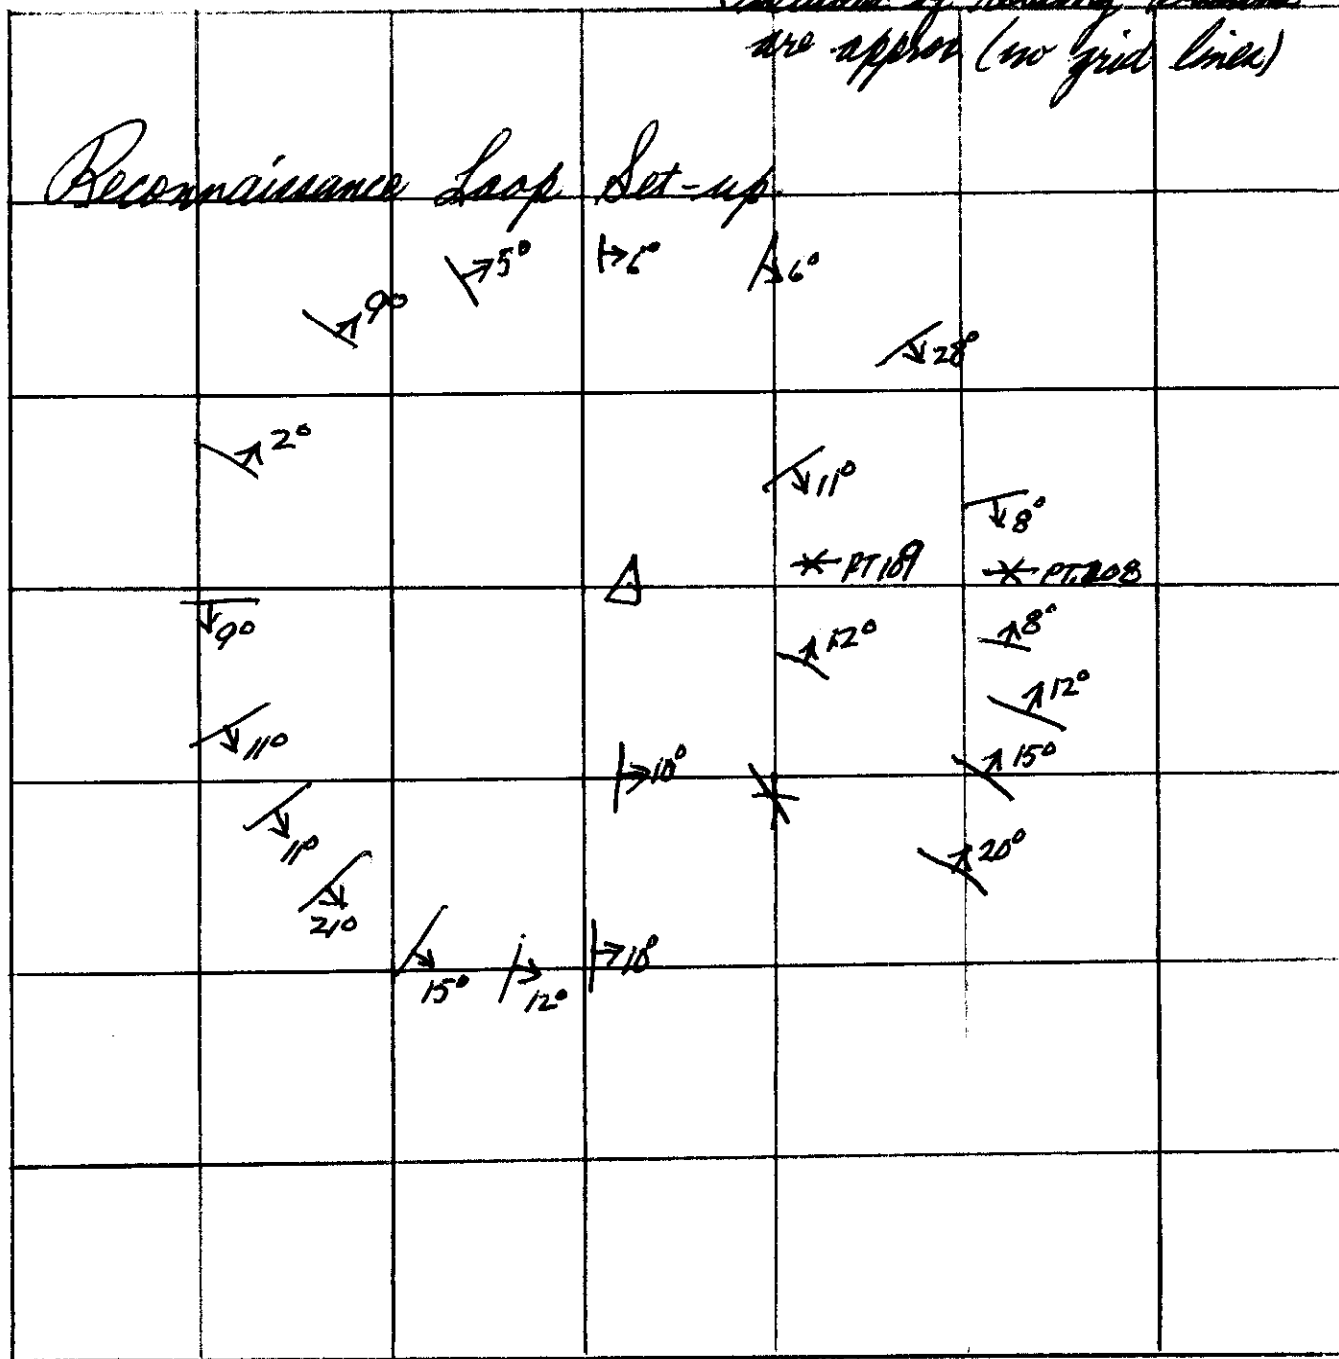 of
are approx (no grid lines)
Reconnaissance Loop Set-up
5° 6° 6°
9°
28°
2°
11°
8°
PT109 PT 208
9° 12° 8°
12°
11° 10° 15°
11°
20°
21°
15° 12° 10°